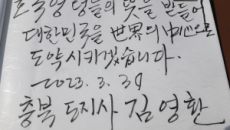 호국영령들의 뜻을 받들어
대한민국을 世界의 中心으로
도약시키겠습니다.
2023. 3. 30
충북도지사 김영환